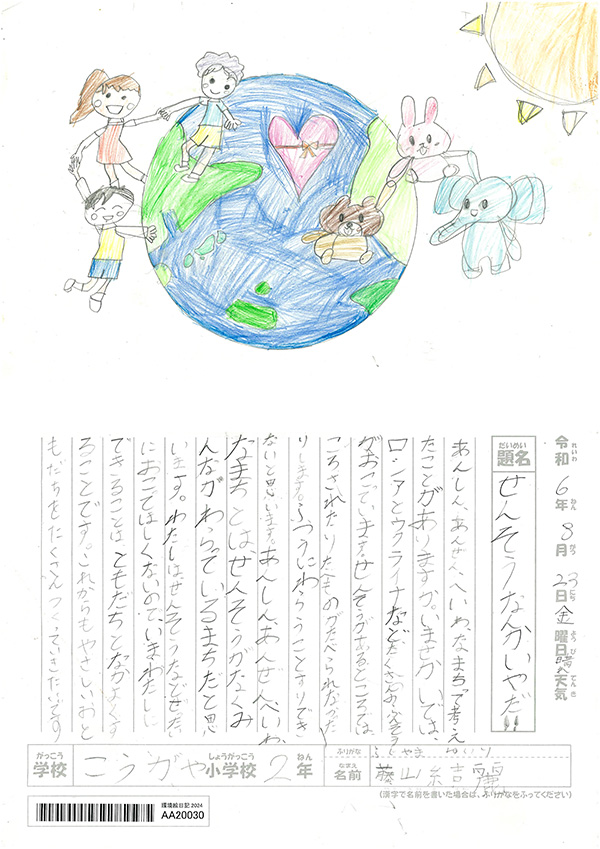 令和6年8月23日金曜日晴天気
れいわ ねん がつ にち ようび てんき
だいめい
題名
せんそうなんかいやだ!!
あんしん、あんぜん、へいわ、なまちって考え
たことがありますか。いませかいでは、
ロシアとウクライナなどたくさんのふんそう
がおこています。せんそうがあるところでは
ころされたりたべものがたべられなかった
りします。ふつうにわらうことすりでき
ないと思います。あんしん、あんぜん、へいわ、
なまちとはせんそうがなくみ
んながわらっているまちだと思
います。わたしはせんそうなどぜったい
におこてほしくないので、いまわたしに
できることはともだちとなかよくす
ることです。これからもやさしいおと
もだちをたくさんつくっていきたいです
がっこう しょうがっこう ねん
学校 こうがや小学校 2年
ふりがな ふじやま
なまえ
名前 藤山 結麗
(漢字で名前を書いた場合は、ふりがなをふってください)
環境絵日記2024
AA20030